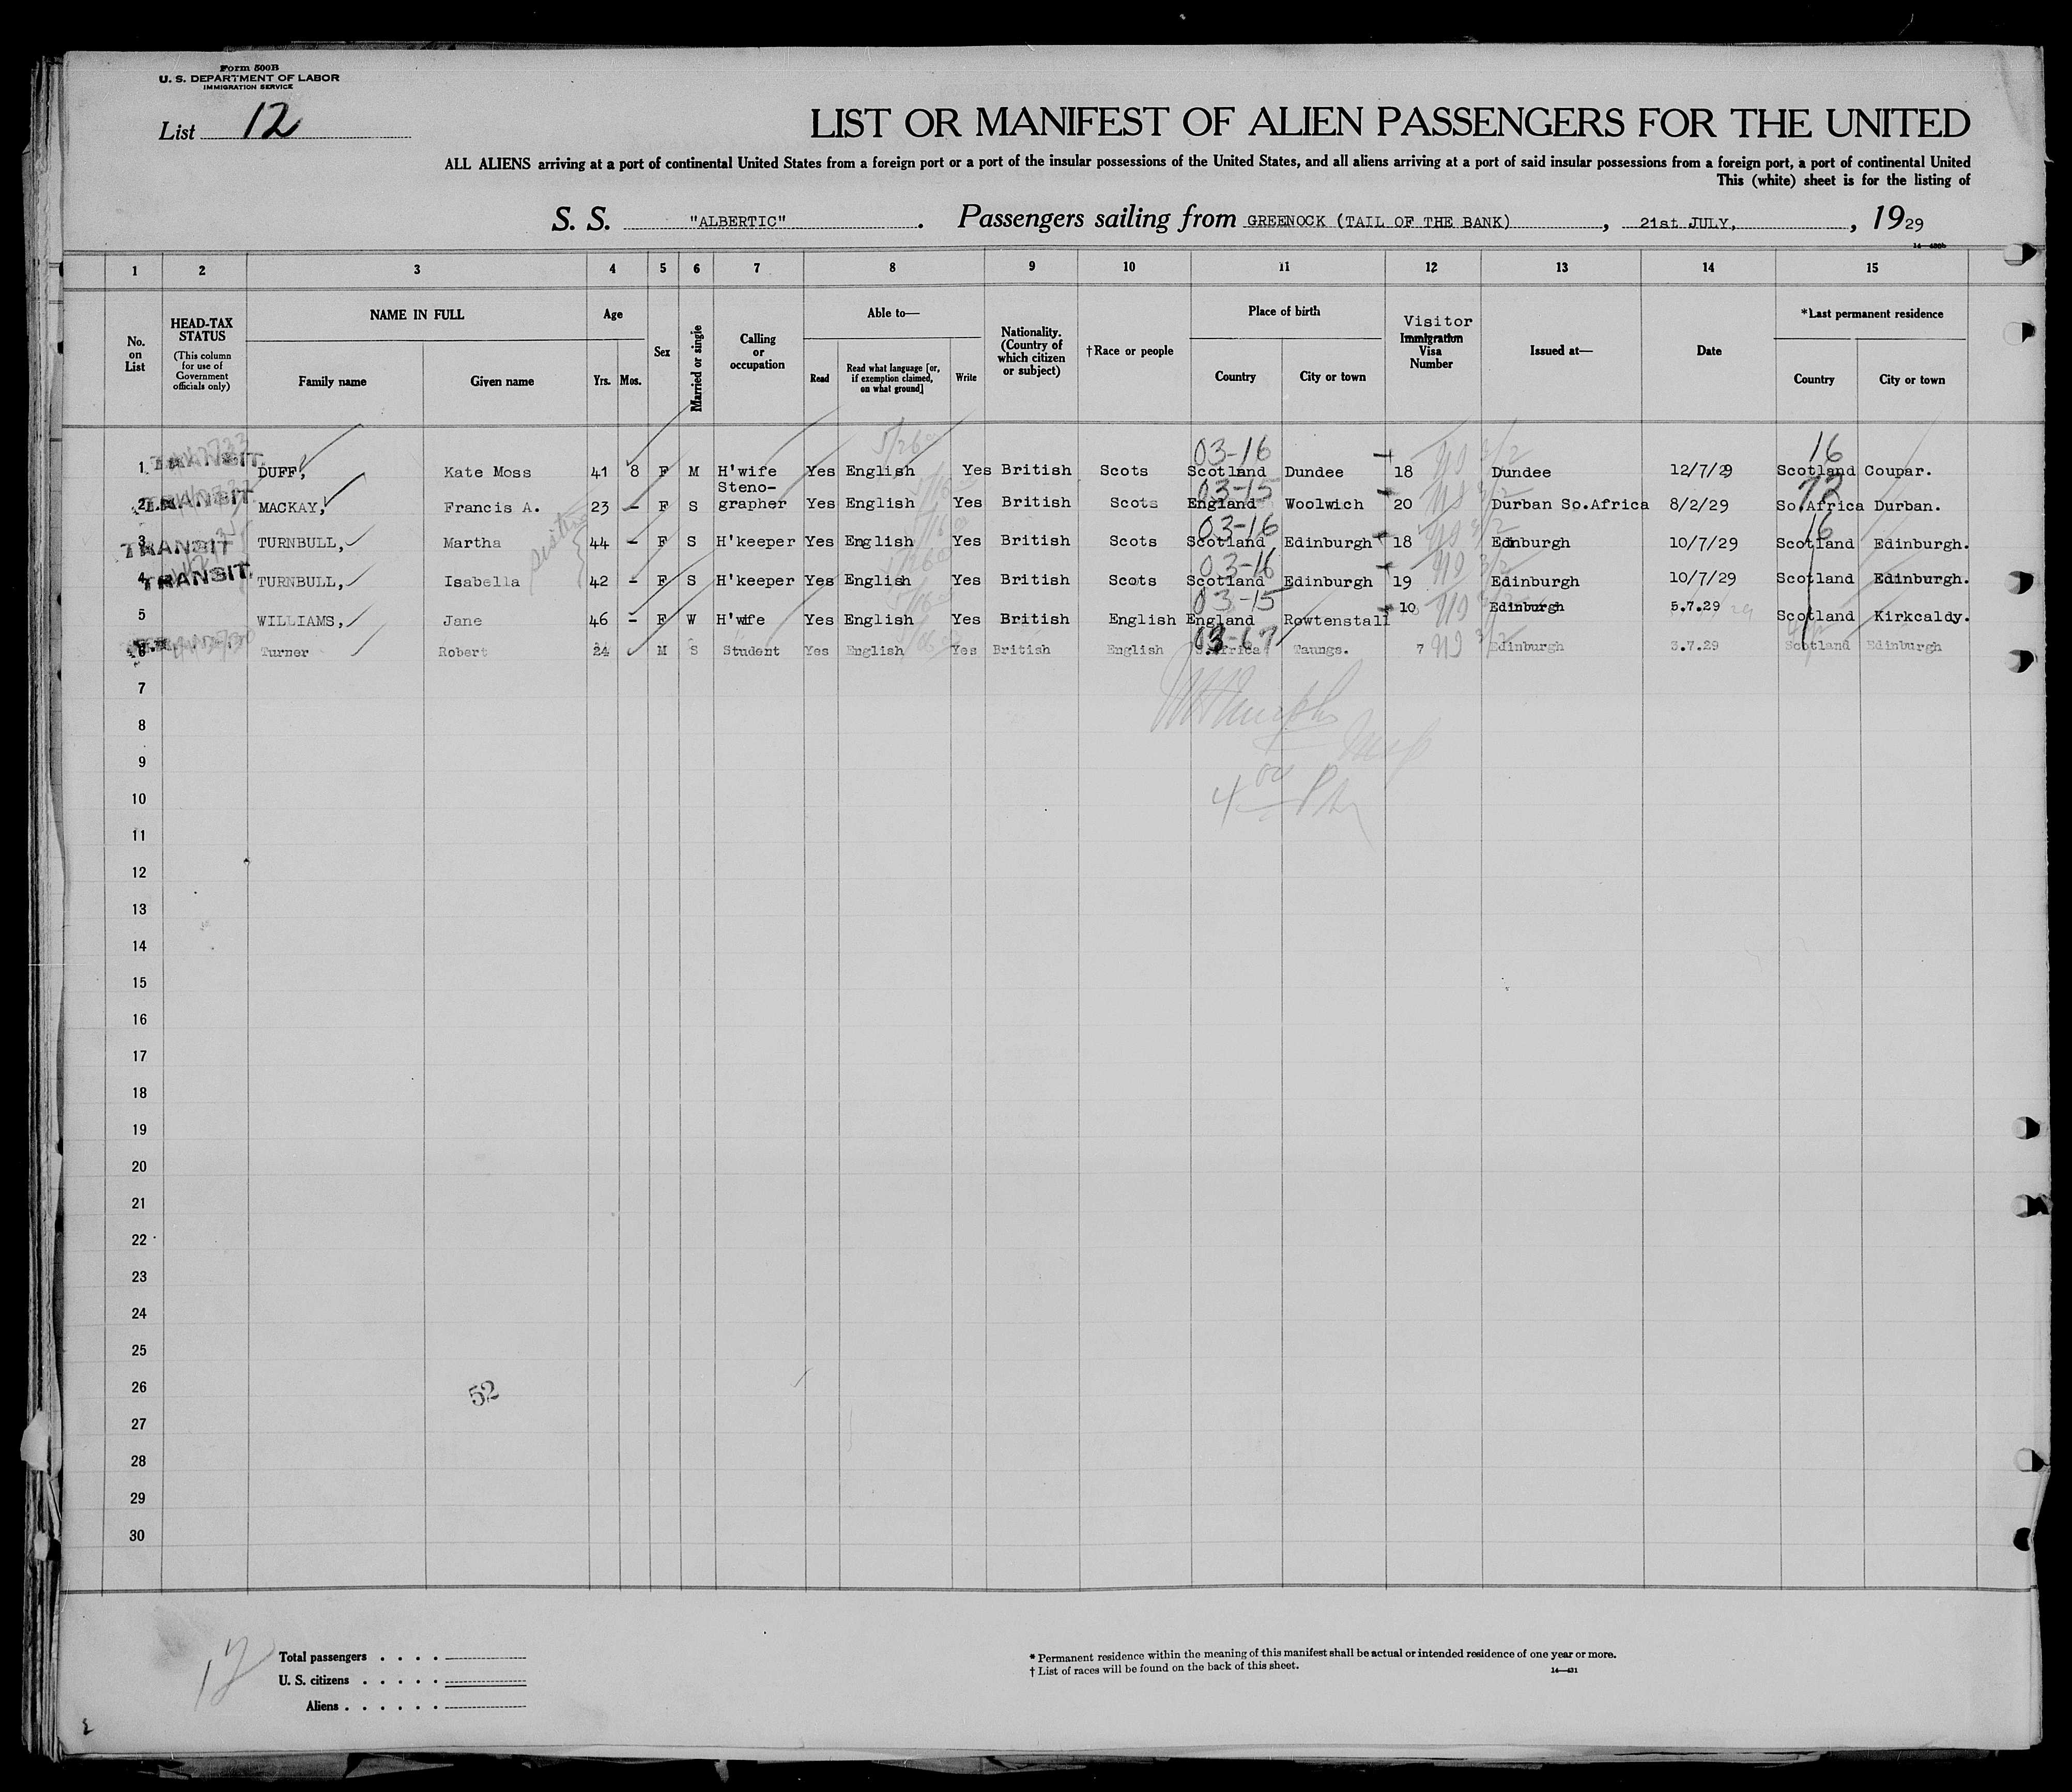 Form 500B
U. S. DEPARTMENT OF LABOR
IMMIGRATION SERVICE
List 12
LIST OR MANIFEST OF ALIEN PASSENGERS FOR THE UNITED
ALL ALIENS arriving at a port of continental United States from a foreign port or a port of the insular possessions of the United States, and all aliens arriving at a port of said insular possessions from a foreign port, a port of continental United
This (white) sheet is for the listing of
S. S. "ALBERTIC". Passengers sailing from GREENOCK (TAIL OF THE BANK), 21st JULY, , 1929
1 2 3 4 5 6 7 8 9 10 11 12 13 14 15
No. on List
HEAD-TAX STATUS
(This column for use of Government officials only)
NAME IN FULL
Family name Given name
Age
Yrs. Mos.
Sex
Married or single
Calling or occupation
Able to—
Read
Read what language [or, if exemption claimed, on what ground]
Write
Nationality. (Country of which citizen or subject)
†Race or people
Place of birth
Country City or town
Visitor
Immigration Visa Number
Issued at—
Date
*Last permanent residence
Country City or town
03-16 16
1 TRANSIT. DUFF, Kate Moss 41 8 F M H'wife Yes English Yes British Scots Scotland Dundee 18 Dundee 12/7/29 Scotland Coupar.
03-15 72
2 TRANSIT MACKAY, Francis A. 23 - F S Steno-grapher Yes English Yes British Scots England Woolwich 20 Durban So.Africa 8/2/29 So.Africa Durban.
sisters
03-16 16
3 TRANSIT TURNBULL, Martha 44 - F S H'keeper Yes English Yes British Scots Scotland Edinburgh 18 Edinburgh 10/7/29 Scotland Edinburgh.
03-16
4 TRANSIT. TURNBULL, Isabella 42 - F S H'keeper Yes English Yes British Scots Scotland Edinburgh 19 Edinburgh 10/7/29 Scotland Edinburgh.
03-15
5 WILLIAMS, Jane 46 - F W H'wife Yes English Yes British English England Rowtenstall 10 Edinburgh 5.7.29 Scotland Kirkcaldy.
03-67
6 Turner Robert 24 M S Student Yes English Yes British English S.Africa Taungs. 7 Edinburgh 3.7.29 Scotland Edinburgh
7
8
9
10
11
12
13
14
15
16
17
18
19
20
21
22
23
24
25
26
52
27
28
29
30
Total passengers . . . .
U. S. citizens . . . . .
Aliens . . . . . .
* Permanent residence within the meaning of this manifest shall be actual or intended residence of one year or more.
† List of races will be found on the back of this sheet.
14—431